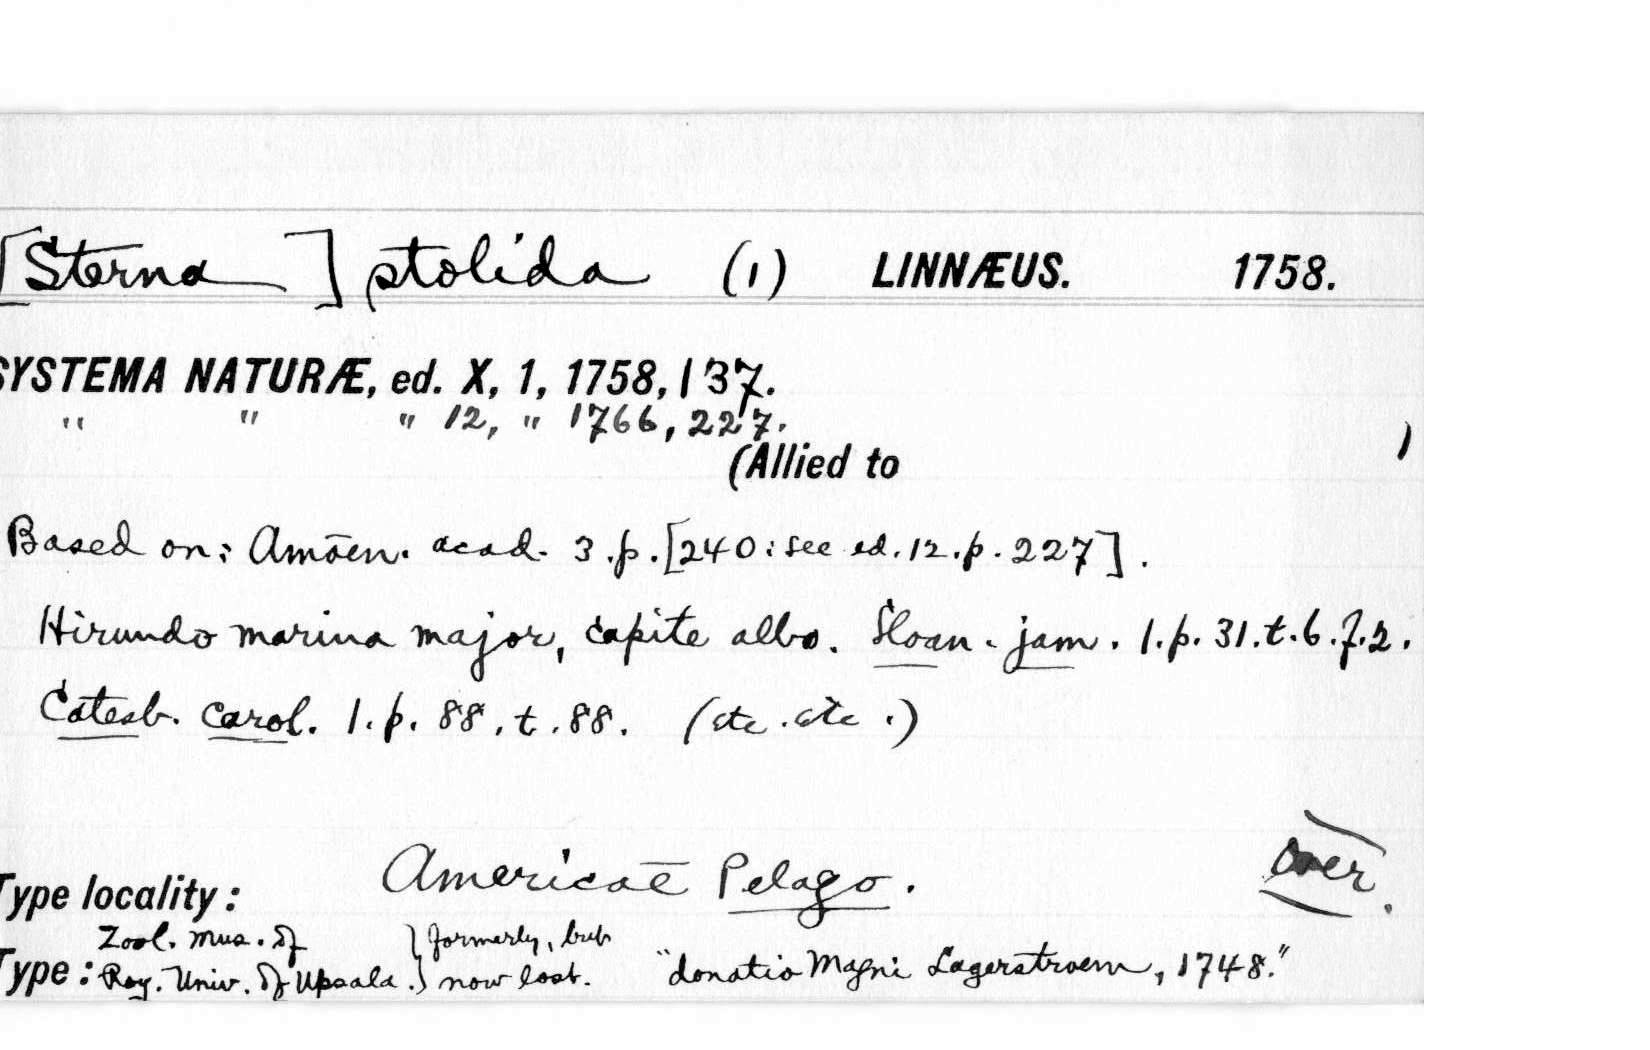 [Sterna ] stolida (1) LINNÆUS. 1758.
SYSTEMA NATURÆ, ed. X, 1, 1758, 137.
" " " 12, " 1766, 227.
(Allied to )
Based on: Amoēn. acad. 3.p.[240: see ed. 12. p. 227].
Hirundo marina major, capite albo. Sloan. jam. 1. p. 31. t. 6. f. 2.
Catesb. carol. 1. p. 88. t. 88. (etc. etc.)
over.
Type locality: Americaē Pelago.
Zool. Mus. of } formerly, but
Type: Roy. Univ. of Upsala. } now lost. "donatio Magni Lagerstroem, 1748."